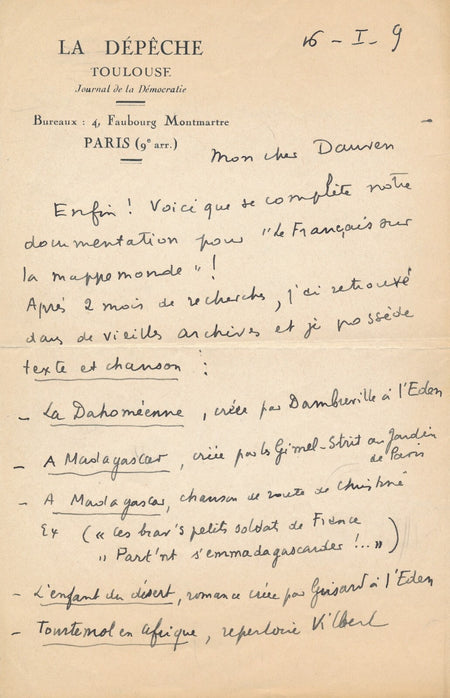 LA DÉPÊCHE
TOULOUSE
Journal de la Démocratie
Bureaux : 4, Faubourg Montmartre
PARIS (9e arr.)
16 - I. 9
Mon cher Dauven
Enfin ! Voici que se complète notre
documentation pour "Le Français sur
la mappemonde" !
Après 2 mois de recherches, j'ai retrouvé
dans de vieilles archives et je possède
texte et chanson :
- La Dahoméenne, créée par Dambreville à l'Eden
- A Madagascar, créée par les Gimel-Strit au Jardin
de Paris
- A Madagascar, chanson de route de Christiné
Ex (« Ces brav's petits soldat de France
" Part'nt s'emmadagascarder !.. »)
- L'enfant du désert, romance créée par Guisard à l'Eden
- Tourtemol en Afrique, repertoire Vilbert